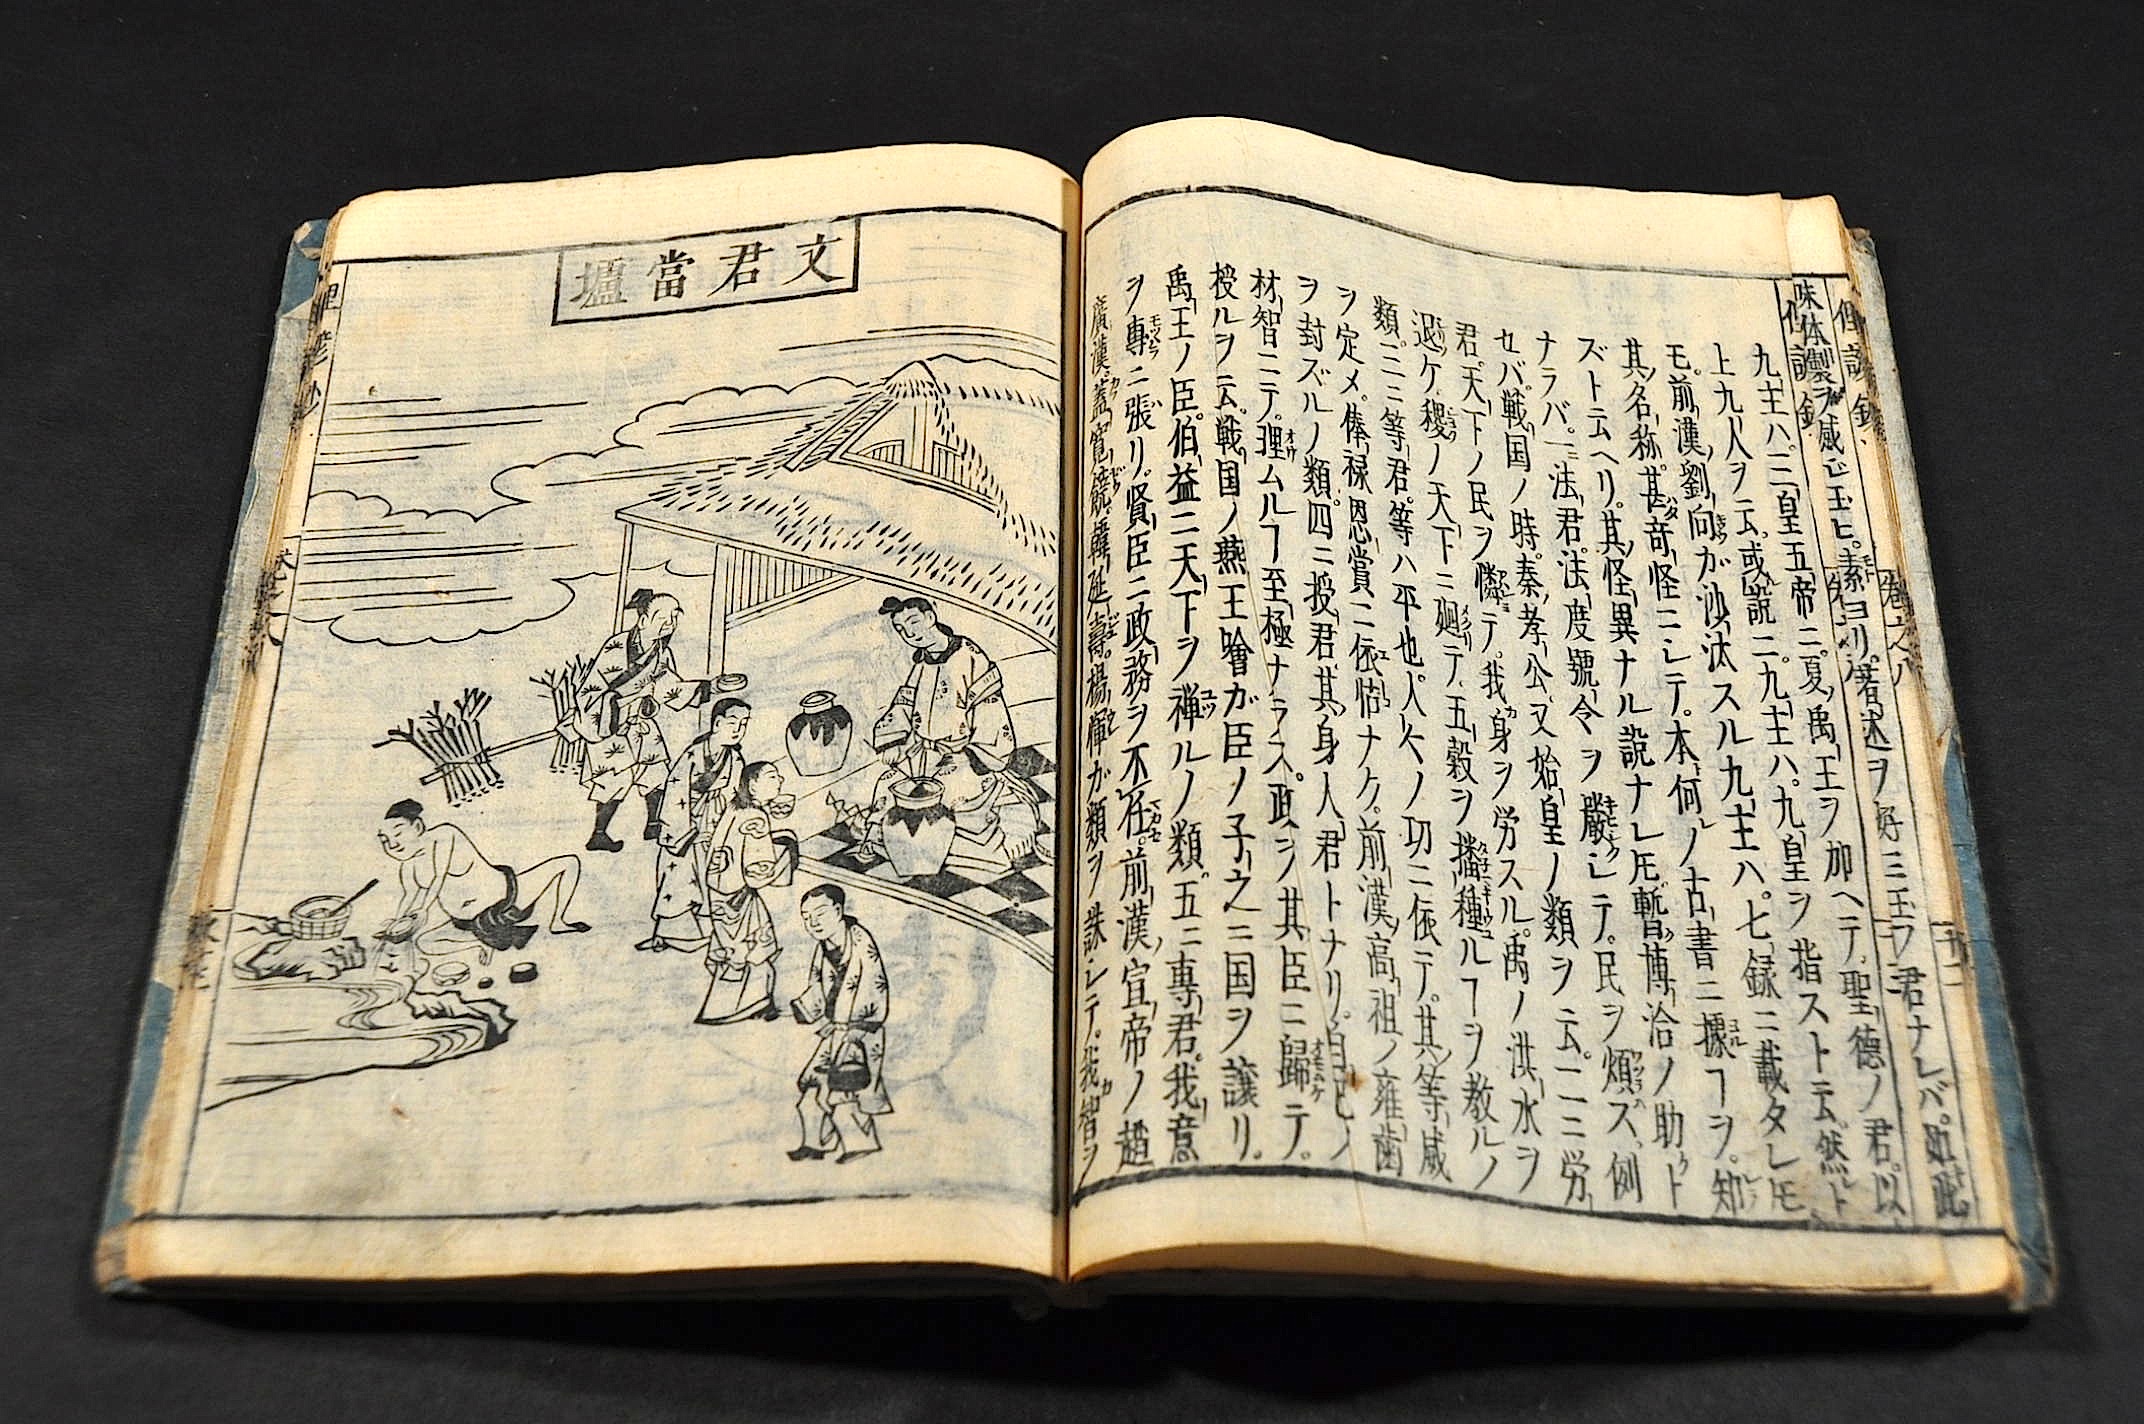 九主ハ。三皇五帝ニ。夏ノ禹王ヲ加ヘテ。聖德ノ君。以
上九人ヲ云。或説ニ。九主ハ。九皇ヲ指ストモ云。然トモ
前漢ノ劉向ガ沙汰スル九主ハ。七録ニ載タレ𪜈
其名称。甚奇怪ニシテ。本何ノ古書ニ據ヿヲ。知
ズト云ヘリ。其怪異ナル説ナレ𪜈。暫博洽ノ助ト
ナラバ。一法君。法度號令ヲ嚴シテ。民ヲ煩ス。例
セバ。戦国ノ時。秦孝公。又始皇ノ類ヲ云。二ニ労
君。天下ノ民ヲ憐テ。我身ヲ労スル。禹ノ洪水ヲ
退ケ。稷ノ天下ニ廻テ。五穀ヲ播種ルヿヲ教ルノ
類。三ニ等君。等ハ平也。人々ノ功ニ依テ。其等咸
ヲ定メ。俸禄恩賞ニ依怙ナク。前漢高祖ノ雍齒
ヲ封ズルノ類。四ニ授君。其身人君トナリ。自ヒノ
材智ニテ。理ムルヿ至極ナラス。政ヲ其臣ニ歸テ。
授ルヲ云。戦国ノ燕王噲ガ臣ノ子之ニ国ヲ讓リ。
禹王ノ臣。伯益ニ天下ヲ禅ルノ類。五ニ專君。我意
ヲ專ニ張リ。賢臣ニ政務ヲ不任。前漢ノ宣帝ノ趙
廣漢。蓋寛饒。韓延壽。楊惲ガ類ヲ誅シテ。我智ヲ
文君當壚